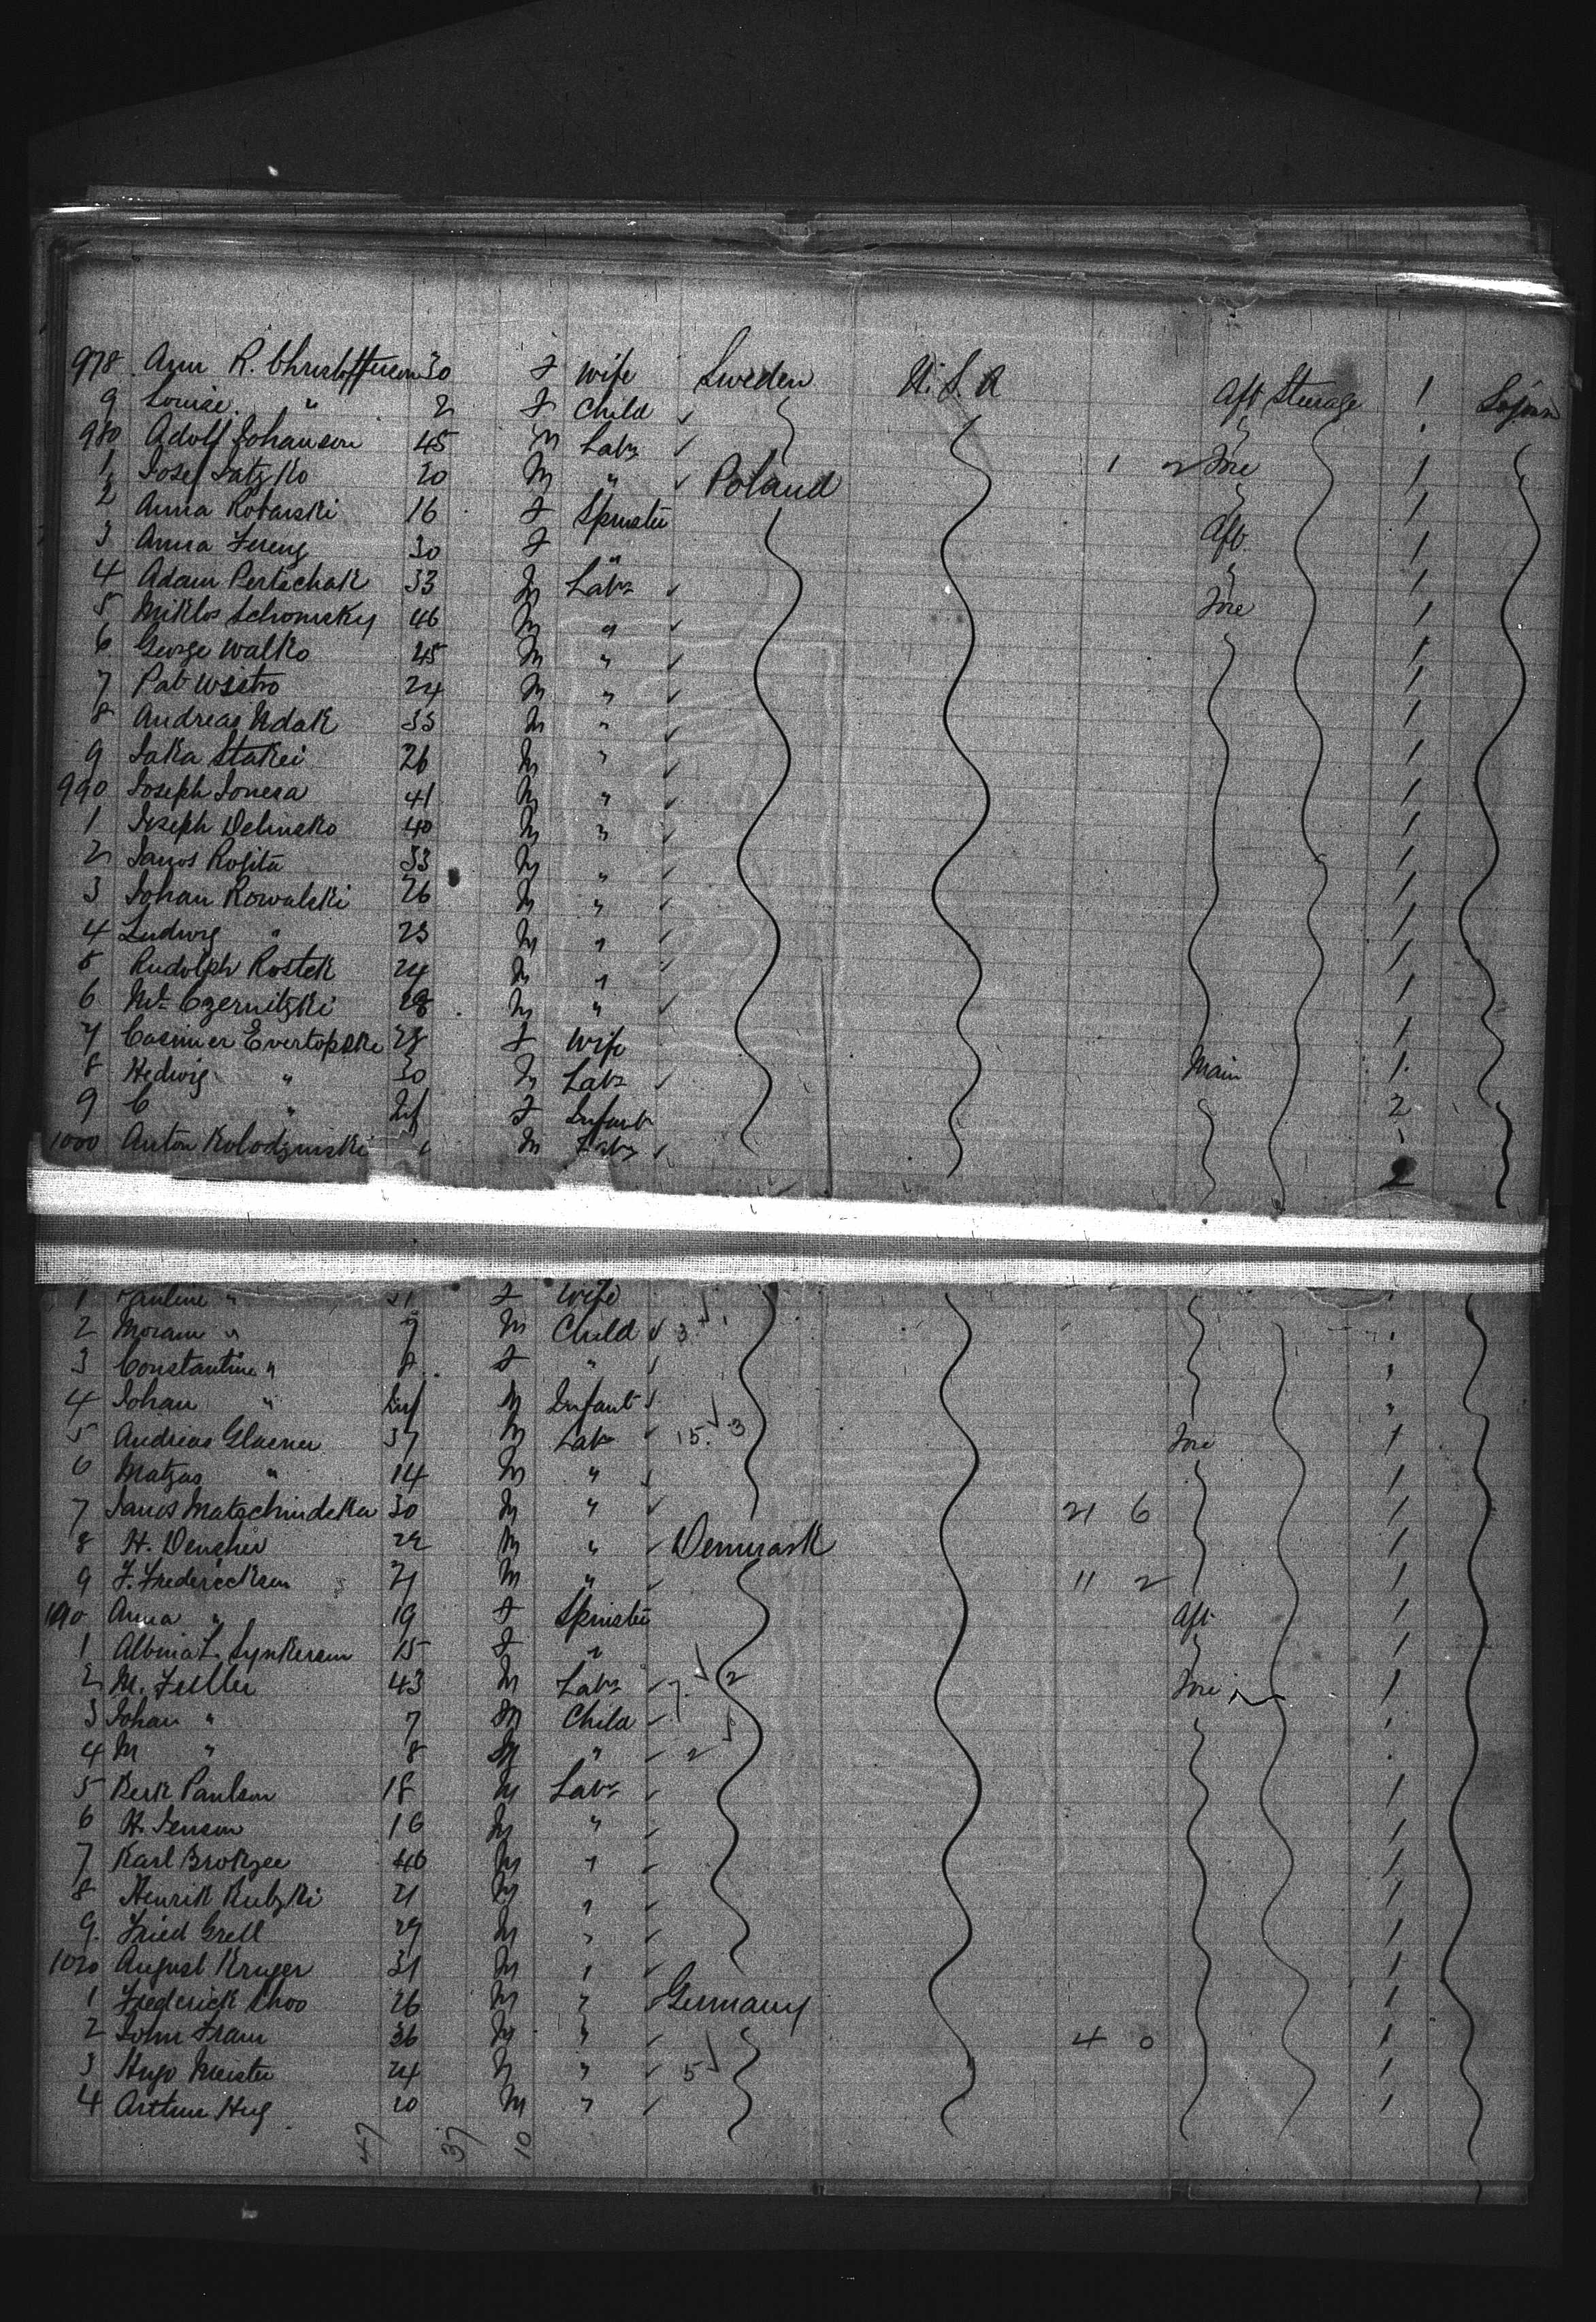 978 Ann R. Christoffersen 30 F Wife Sweden U.S.A Aft Sterage 1
9 Louise " 2 F Child ✓
980 Adolf Johanson 45 M Labr ✓ Fore 1
1 Josef Satzko 20 M " ✓ Poland 1 2 1
2 Anna Kobarski 16 F Spinster Aft 1
3 Anna Fereng 30 F " 1
4 Adam Pertschak 33 M Labr ✓ Fore 1
5 Miklos Schomsky 46 M " ✓ 1
6 George Walko 45 M " ✓ 1
7 24 M " ✓ 1
8 Andreas Udak 33 M " ✓ 1
9 Jaka Stakei 26 M " ✓ 1
990 Joseph Jonesa 41 M " ✓ 1
1 Joseph Delinsko 40 M " ✓ 1
2 Janos Rosita 33 M " ✓ 1
3 Johan Kowalski 26 M " ✓ 1
4 Ludwig " 23 M " ✓ 1
5 Rudolph Rostek 24 M " ✓ 1
6 Czernitzki 28 M " ✓ 1
7 Casimer Evertopske 28 F Wife 1
8 Hedwig " 30 M Labr ✓ Main 1
9 C " Inf F Infant 2
1000 Anton Kolodzinski M Labr ✓ 1
2
1 Pauline " 21 F Wife
2 " 7 M Child ✓ 3
3 Constantine " 8 F " ✓
4 Johan " Inf M Infant ✓
5 Andreas Glaener 37 M Labr ✓ 15 3 Fore 1
6 Matzas " 14 M " ✓ 1
7 Janos Matzchindeka 30 M " ✓ 21 6 1
8 H. Densher 22 M " ✓ Denmark 1
9 F. Fredericksen 21 M " ✓ 11 2 1
1010 Anna " 19 F Spinster Aft 1
1 Albina L. Synkersen 15 F " 1
2 M. Feller 43 M Labr ✓ 7 2 Fore 1
3 Johan " 7 M Child ✓
4 M " 8 M " ✓ 2
5 Paulson 18 M Labr ✓ 1
6 H. Jenson 16 M " ✓ 1
7 Karl Brokzee 40 M " ✓ 1
8 Henrik Rutzki 21 M " ✓ 1
9 Fried Grell 29 M " ✓ 1
1020 August Kruger 31 M " ✓ 1
1 Frederick 26 M " ✓ Germany 1
2 John Fram 36 M " ✓ 4 0 1
3 Hugo Meister 24 M " ✓ 5 1
4 Arthur Hug 20 M " ✓ 1
47 37 10